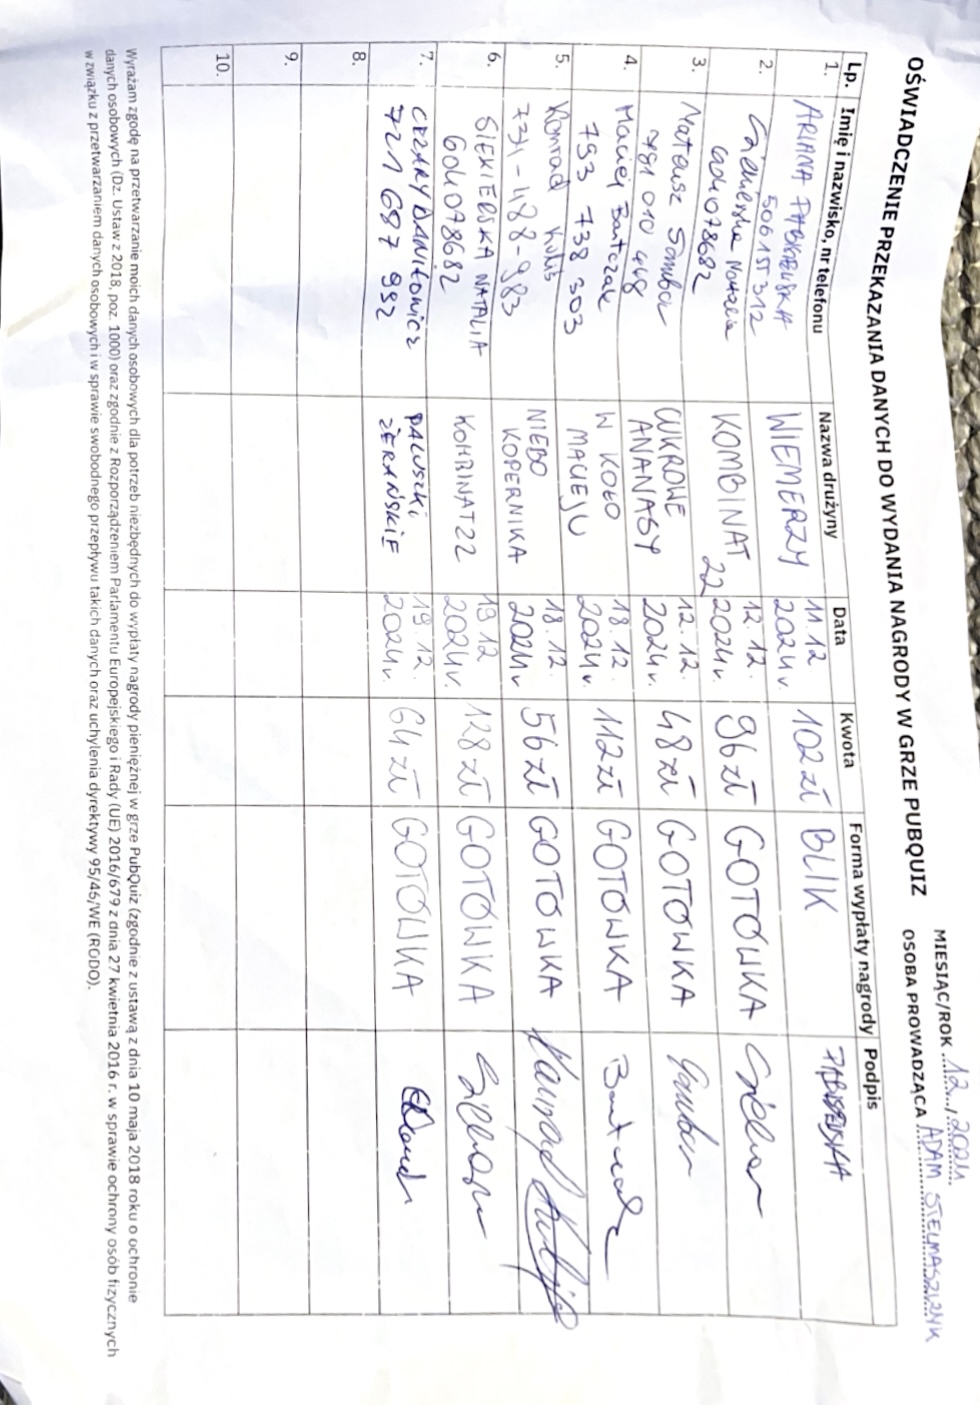 MIESIĄC/ROK 12./2024
OŚWIADCZENIE PRZEKAZANIA DANYCH DO WYDANIA NAGRODY W GRZE PUBQUIZ
OSOBA PROWADZĄCA ADAM STELMASZCZYK
Lp. Imię i nazwisko, nr telefonu Nazwa drużyny Data Kwota Forma wypłaty nagrody Podpis
1. ARIANA WIEMERZY 11.12 102 zł BLIK
506155312 2024r.
2. Natalia KOMBINAT 12.12. 96 zł GOTÓWKA
604078682 22 2024r.
3. Mateusz Sambor CUKROWE 12.12. 48 zł GOTÓWKA
781 010 468 ANANASY 2024r.
4. Maciej Bartczak W KOŁO 18.12. 112 zł GOTÓWKA
793 738 303 MACIEJU 2024r.
5. Konrad Kulis NIEBO 18.12. 56 zł GOTÓWKA Konrad
731-488-983 KOPERNIKA 2024r
6. SIEKIERSKA NATALIA KOMBINAT22 19.12 128 zł GOTÓWKA
604078682 2024r.
7. CEZARY DANIŁOWICZ PALUSZKI 19.12. 64 zł GOTÓWKA
721 687 992 ŻERAŃSKIE 2024r.
8.
9.
10.
Wyrażam zgodę na przetwarzanie moich danych osobowych dla potrzeb niezbędnych do wypłaty nagrody pieniężnej w grze PubQuiz (zgodnie z ustawą z dnia 10 maja 2018 roku o ochronie
danych osobowych (Dz. Ustaw z 2018, poz. 1000) oraz zgodnie z Rozporządzeniem Parlamentu Europejskiego i Rady (UE) 2016/679 z dnia 27 kwietnia 2016 r. w sprawie ochrony osób fizycznych
w związku z przetwarzaniem danych osobowych i w sprawie swobodnego przepływu takich danych oraz uchylenia dyrektywy 95/46/WE (RODO).